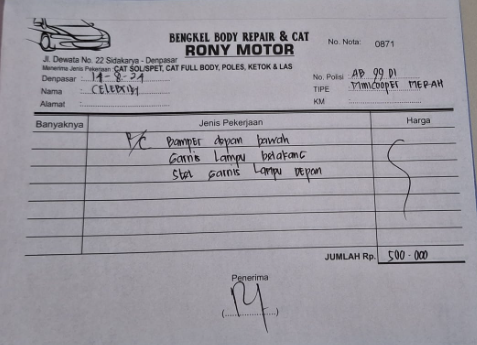 BENGKEL BODY REPAIR & CAT
RONY MOTOR
No. Nota: 0871
Jl. Dewata No. 22 Sidakarya - Denpasar
Menerima Jenis Pekerjaan CAT SOL/SPET, CAT FULL BODY, POLES, KETOK & LAS
Denpasar : 19-8-24
Nama :
Alamat :
No. Polisi : AB 99 DI
TIPE : Minicooper MERAH
KM :
Banyaknya Jenis Pekerjaan Harga
Bamper depan bawah
Garnis Lampu belakang
Garnis Lampu Depan
JUMLAH Rp. 500.000
Penerima
(..................)